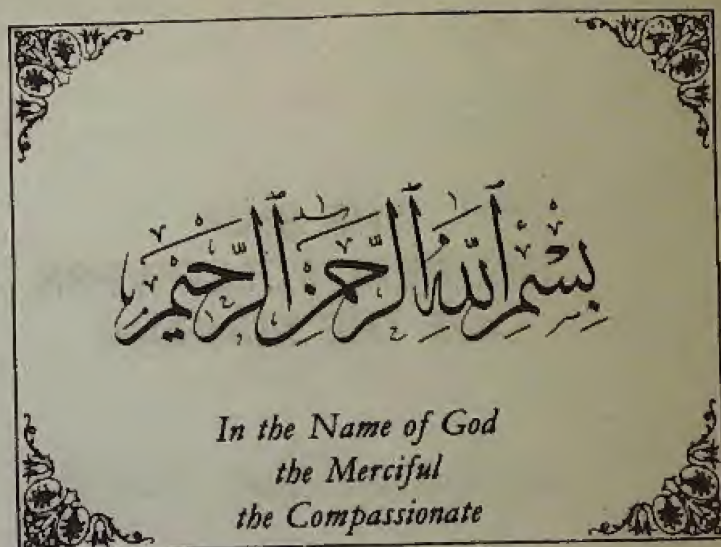 بِسْمِ ٱللَّهِ ٱلرَّحْمَنِ ٱلرَّحِيمِ
In the Name of God
the Merciful
the Compassionate